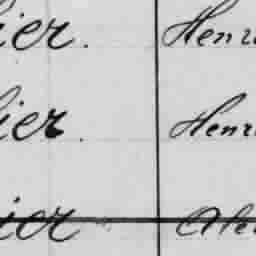 ier. Henr
ier. Henr
ier Ale